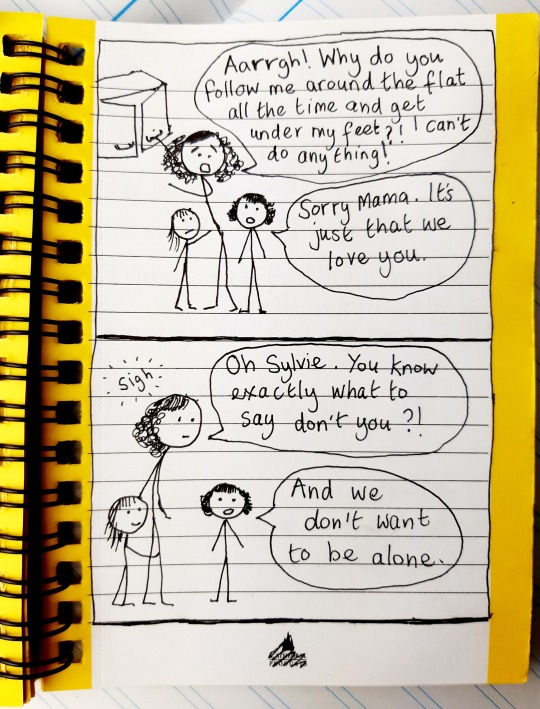 Aarrgh! Why do you
follow me around the flat
all the time and get
under my feet?!! I can't
do anything!
Sorry Mama. It's
just that we
love you.
Sigh
Oh Sylvie. You know
exactly what to
say don't you?!
And we
don't want
to be alone.